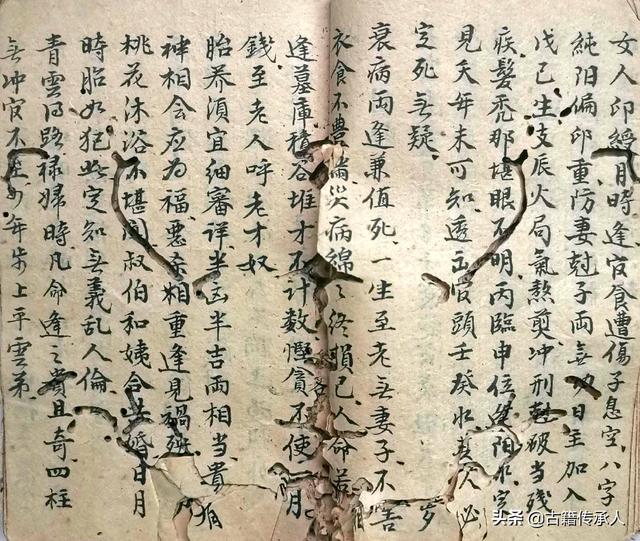 女人印綬月時逢官食遭傷子息空八字
純阳偏印重防妻尅子両無功日主加入
戊己生支辰火局氣熬煎冲刑尅破当残
疾髮禿那堪眼不明丙臨申位逢阳水定
見夭年未可知透出官頭壬癸水其人必
定死無疑
衰病両逢兼值死一生至老無妻子不
衣食不豊災病綿々终損已人命若
逢墓庫積谷堆才不計數慳貪不使
錢至老人呼老才奴
胎养須宜細審詳半凶半吉両相当貴
神相会应为福惡杀相重逢見禍殃
桃花沐浴不堪聞叔伯和姨合共婚日月
時胎如犯此定知無義乱人倫
青雲得路禄婦時凡命逢之貴且奇四柱
無冲官不坐少年步上平雲第
头条 @古籍传承人